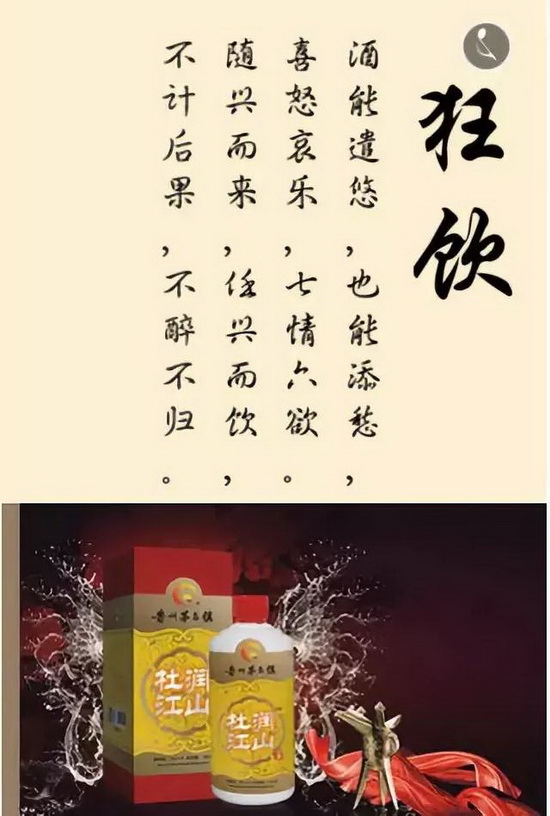 狂饮
酒能遣悠，也能添愁，
喜怒哀乐，七情六欲。
随兴而来，任兴而饮，
不计后果，不醉不归。
贵州茅台镇
杜润
江山
贵州茅台镇
杜润
江山